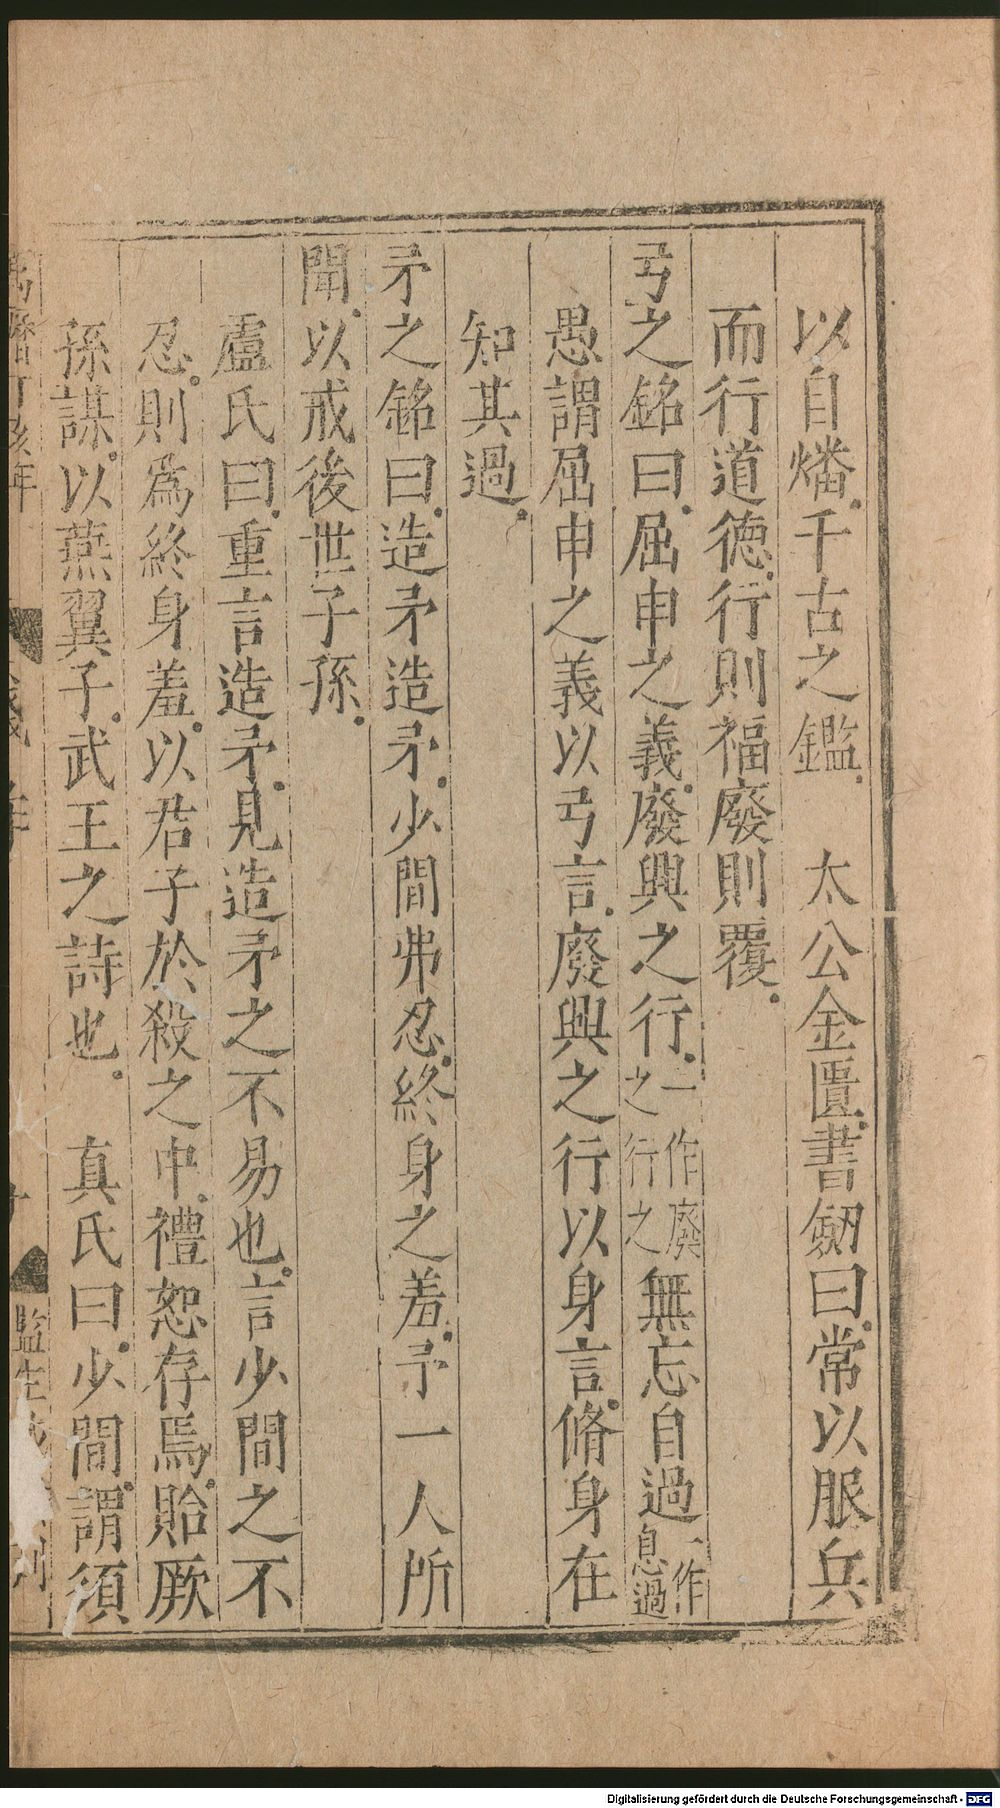 以自燔。千古之鑑。　太公金匱。書劒曰。常以服兵
而行道德。行則福廢則覆。
弓之銘曰。屈申之義。廢興之行。一作廢之行之無忘自過一作息過
愚謂屈申之義以弓言。廢興之行以身言。脩身在
知其過。
矛之銘曰。造矛造矛。少間弗忍。終身之羞。予一人所
聞。以戒後世子孫。
盧氏曰。重言造矛。見造矛之不易也。言少間之不
忍。則爲終身羞。以君子於殺之中。禮恕存焉。貽厥
孫謀。以燕翼子。武王之詩也。　真氏曰。少間。謂須
萬曆丁亥年
監生
Digitalisierung gefördert durch die Deutsche Forschungsgemeinschaft - DFG